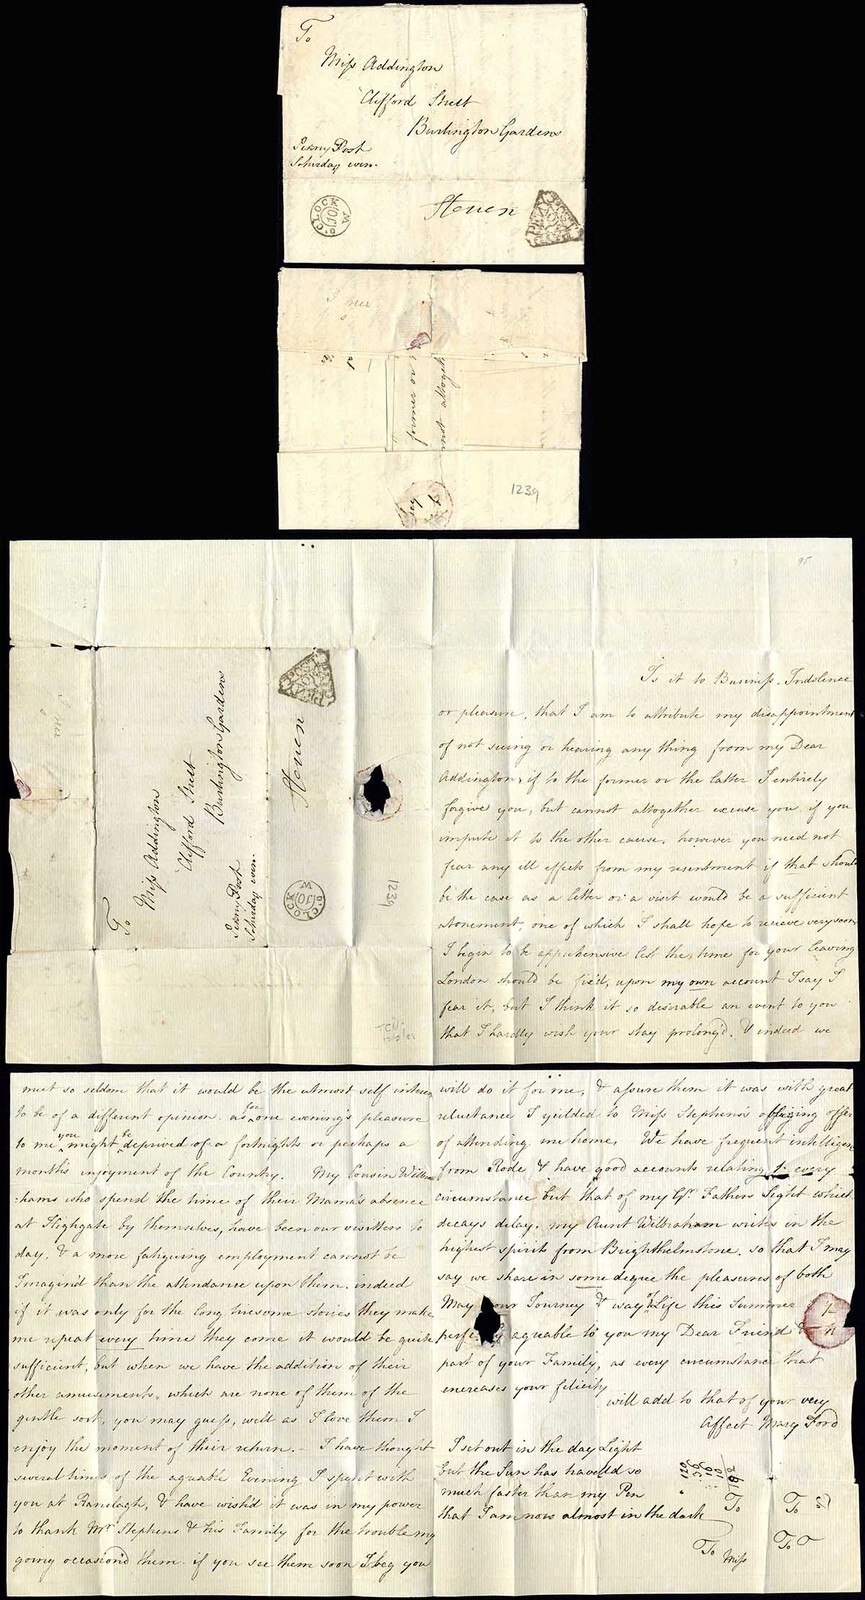 To
Miss Addington
Clifford Street
Burlington Gardens
Penny Post
Saturday even.
Steven
O'CLOCK
10
W
PENNY POST
former or
not altoget
1239
95
Is it to Business, Indolence
or pleasure, that I am to attribute my disappointment
of not seeing or hearing any thing from my Dear
Addington, if to the former or the latter I entirely
forgive you, but cannot altogether excuse you if you
impute it to the other cause, however you need not
fear any ill effects from my resentment if that should
be the case as a letter or a visit would be a sufficient
atonement, one of which I shall hope to recieve very soon
I begin to be apprehensive lest the time for your leaving
London should be fix'd, upon my own account I say I
fear it, but I think it so desirable an event to you
that I hardly wish your stay prolong'd. & indeed we
To
Miss Addington
Clifford Street
Burlington Gardens
Penny Post
Saturday even.
Steven
O'CLOCK
10
W
1239
meet so seldom that it would be the utmost self
to be of a different opinion. as for one evening's pleasure
to me you might be deprived of a fortnights or perhaps a
months enjoyment of the Country. My Cousin Willbra
-hams who spend the time of their Mama's absence
at Highgate by themselves, have been our visitters to
day, & a more fatiguing employment cannot be
Imagin'd than the attendance upon them. indeed
if it was only for the long tiresome stories they make
me repeat every time they come it would be quite
sufficient, but when we have the addition of their
other amusements, which are none of them of the
gentle sort, you may guess, well as I love them I
enjoy the moment of their return. - I have thought
several times of the agreable Evening I spent with
you at Ranelagh, & have wish'd it was in my power
to thank Mrs Stephens & his Family for the trouble my
going occasion'd them. if you see them soon I beg you
will do it for me, & assure them it was with great
reluctance I yielded to Miss Stephens's obliging offer
of attending me home. We have frequent intelligence
from Rode & have good accounts relating to every
circumstance but that of my Gd. Fathers Sight which
decays delay. my Aunt Wilbraham writes in the
highest spirits from Brighthelmstone. so that I may
say we share in some degree the pleasures of both
May your Journey & way of Life this Summer
agreable to you my Dear Friend &
part of your Family, as every circumstance that
increases your felicity
will add to that of your very
Affect. Mary Ford
I set out in the day Light
but the Sun has travel'd so
much faster than my Pen
that I am now almost in the dark
To
To
To
To
Miss